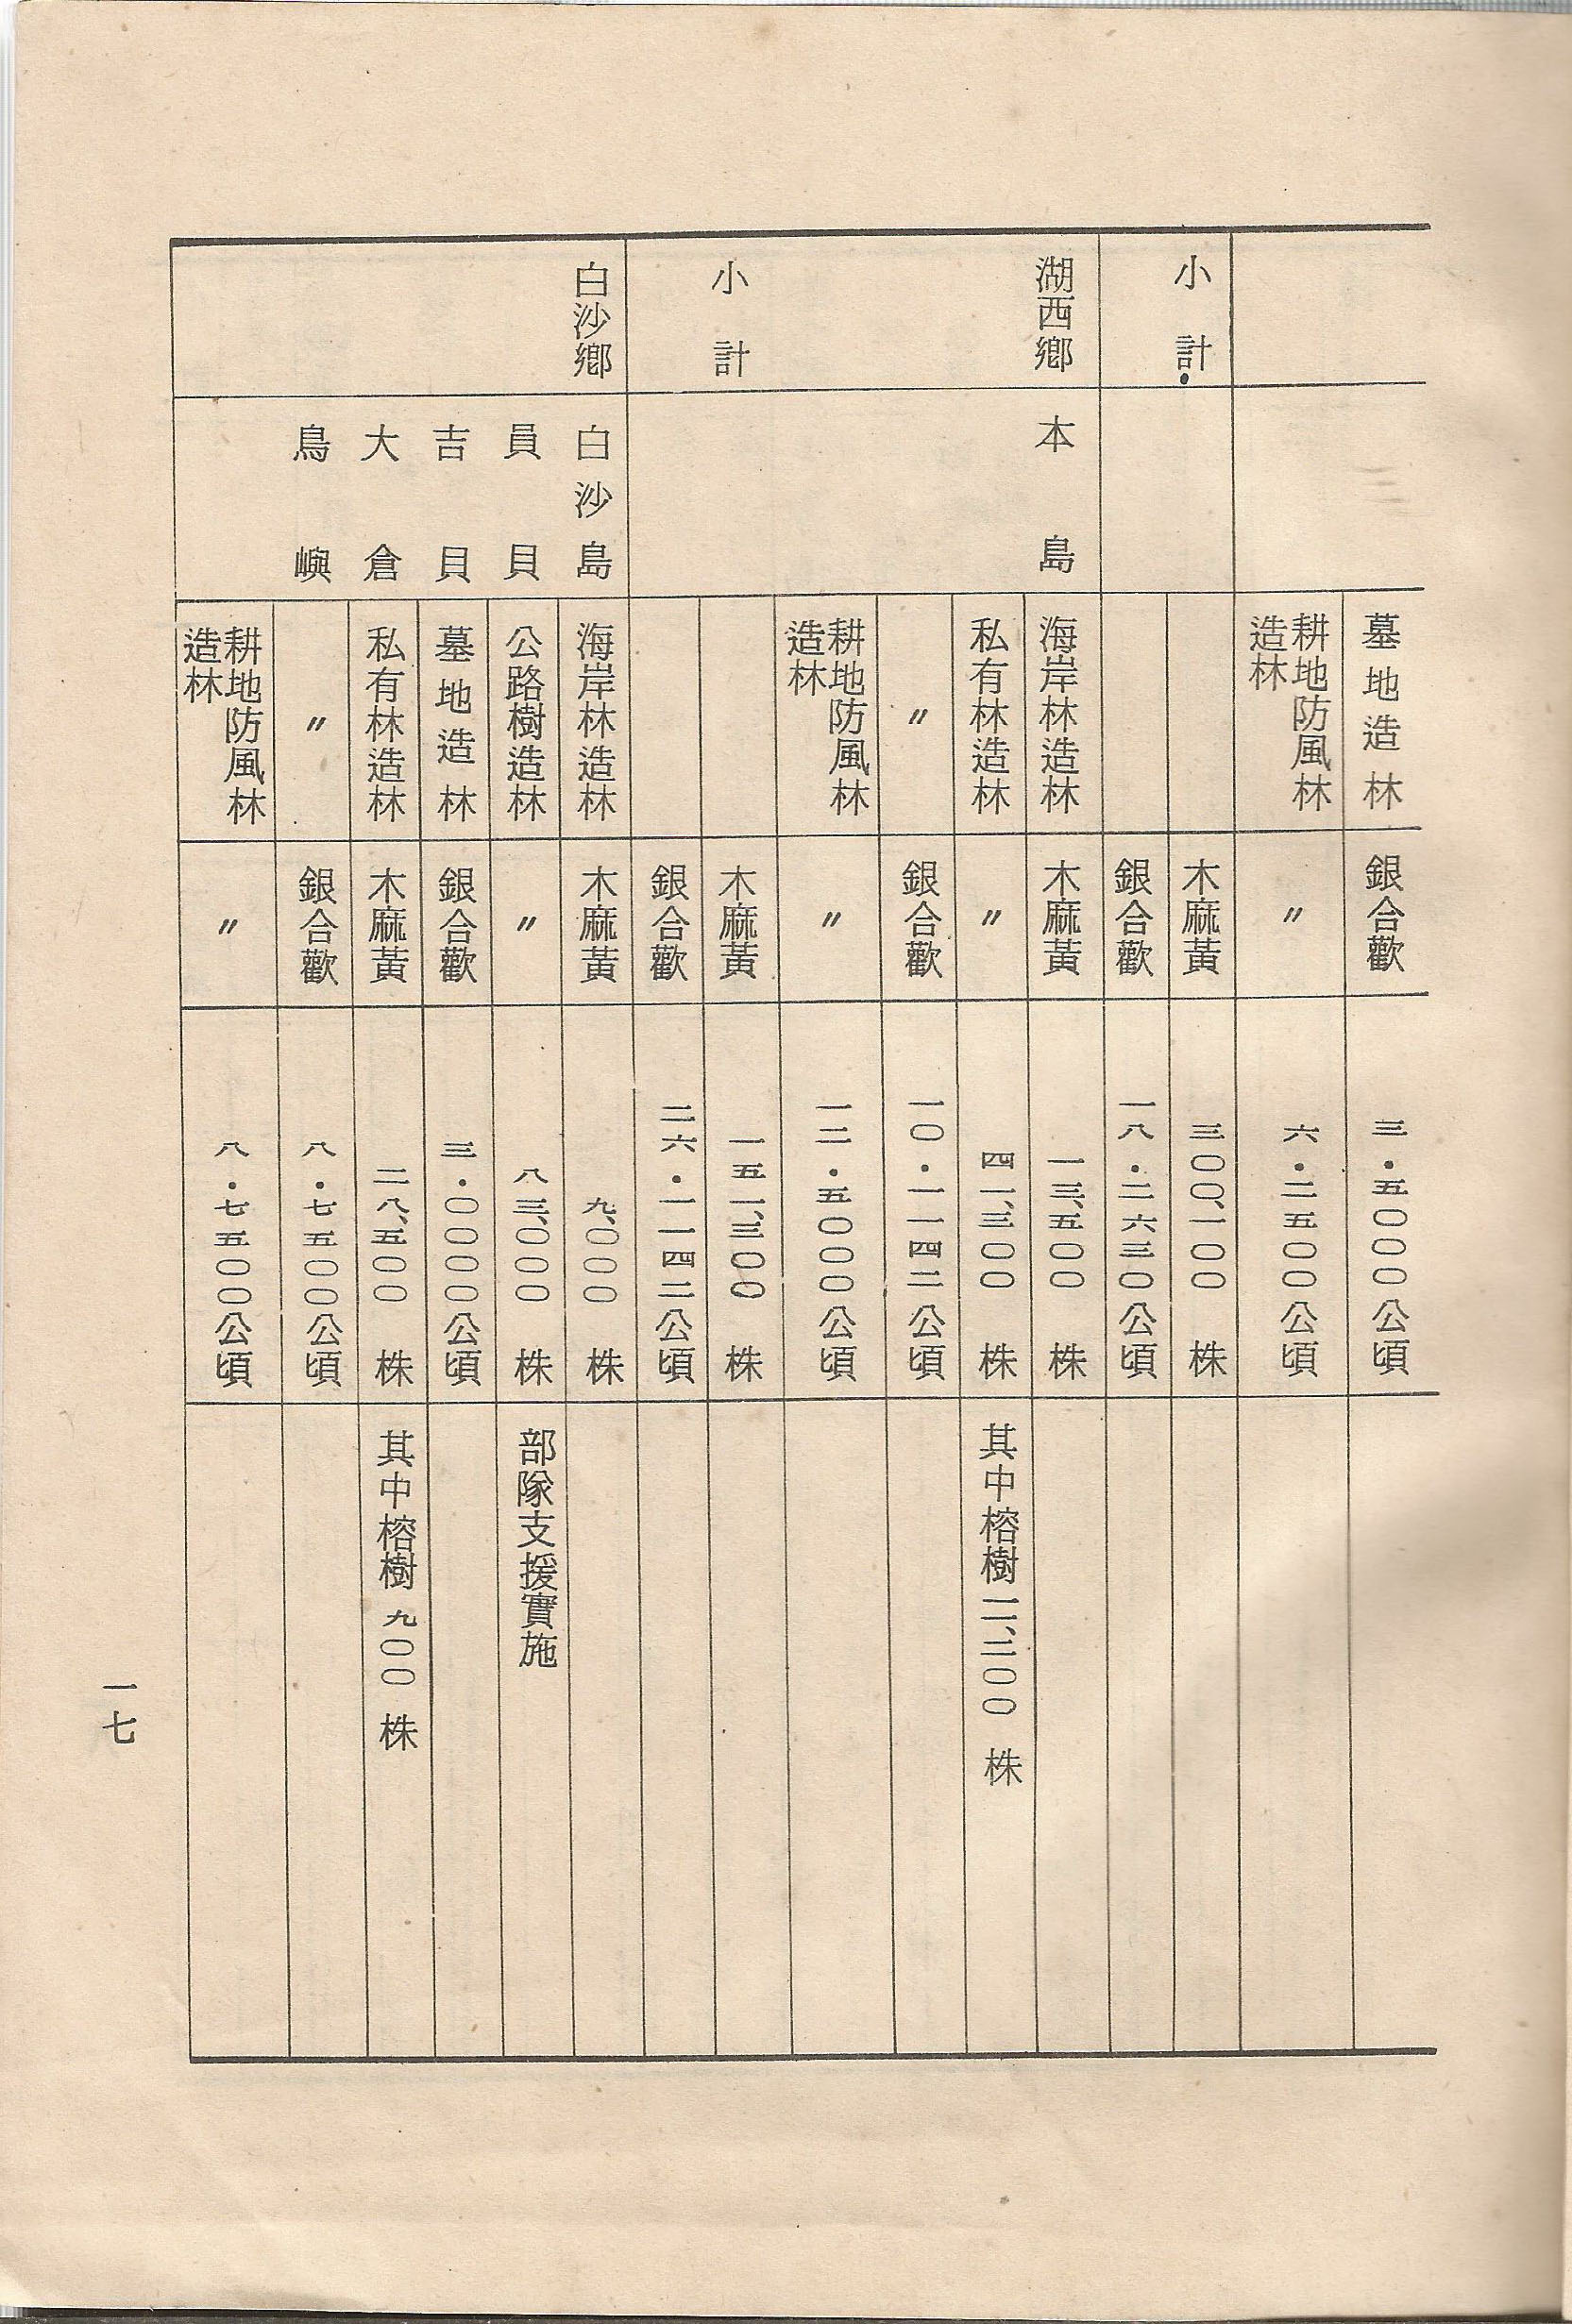 墓地造林 銀合歡 三・五〇〇〇公頃
耕地防風林造林 〃 六・二五〇〇公頃
小計 木麻黃 三〇〇、一〇〇株
銀合歡 一八・二六三〇公頃
湖西鄉 本島 海岸林造林 木麻黃 一三、五〇〇株
私有林造林 〃 四一、三〇〇株 其中榕樹二、二〇〇株
〃 銀合歡 一〇・一一四二公頃
耕地防風林造林 〃 一二・五〇〇〇公頃
小計 木麻黃 一五一、三〇〇株
銀合歡 二六・一一四二公頃
白沙鄉 白沙島 海岸林造林 木麻黃 九、〇〇〇株
員貝 公路樹造林 〃 八三、〇〇〇株 部隊支援實施
吉貝 墓地造林 銀合歡 三・〇〇〇〇公頃
大倉 私有林造林 木麻黃 二八、五〇〇株 其中榕樹九〇〇株
鳥嶼 〃 銀合歡 八・七五〇〇公頃
耕地防風林造林 〃 八・七五〇〇公頃
一七